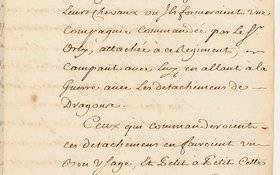 Leurs chevaux ou Ils formeroient vne
Compagnie, Commandée par le Sr.
Orly, attachée à ce Regiment,
Campant avec Luy en allant à la
Guerre avec Les detachemens de
Dragons.
Ceux qui commanderoient
ces detachemens en fairoient vn
bon Vsage, Et Petit à Petit Cette